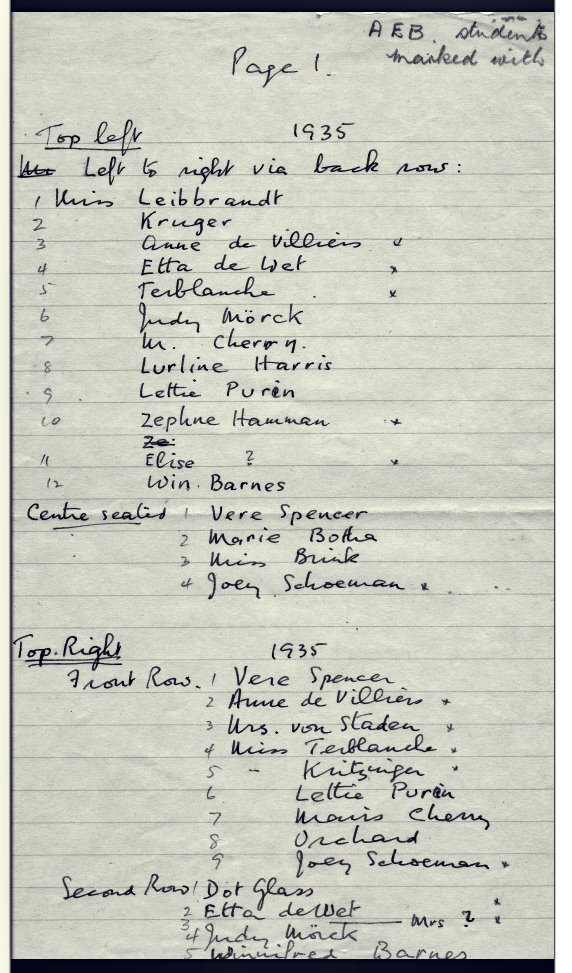 A E B. students
marked with
Page 1.
Top left 1935
Left to right via back row:
1 Miss Leibbrandt
2 Kruger
3 Anne de Villiers x
4 Etta de Wet x
5 Terblanche x
6 Judy Mörck
7 M. Cherry.
8 Lurline Harris
9 Lettie Purén
10 Zephne Hamman x
Ze.
11 Elise ? x
12 Win. Barnes
Centre seated 1 Vere Spencer
2 Marie Botha
3 Miss Brink
4 Joey Schoeman x
Top.Right 1935
Front Row. 1 Vere Spencer
2 Anne de Villiers x
3 Mrs. von Staden x
4 Miss Terblanche x
5 - Kritzinger x
6 Lettie Purén
7 Mavis Cherry
8 Orchard
9 Joey Schoeman x
Second Row 1 Dot Glass x
2 Etta de Wet x
3 Mrs ? x
4 Judy Mörck
5 Winnifred Barnes